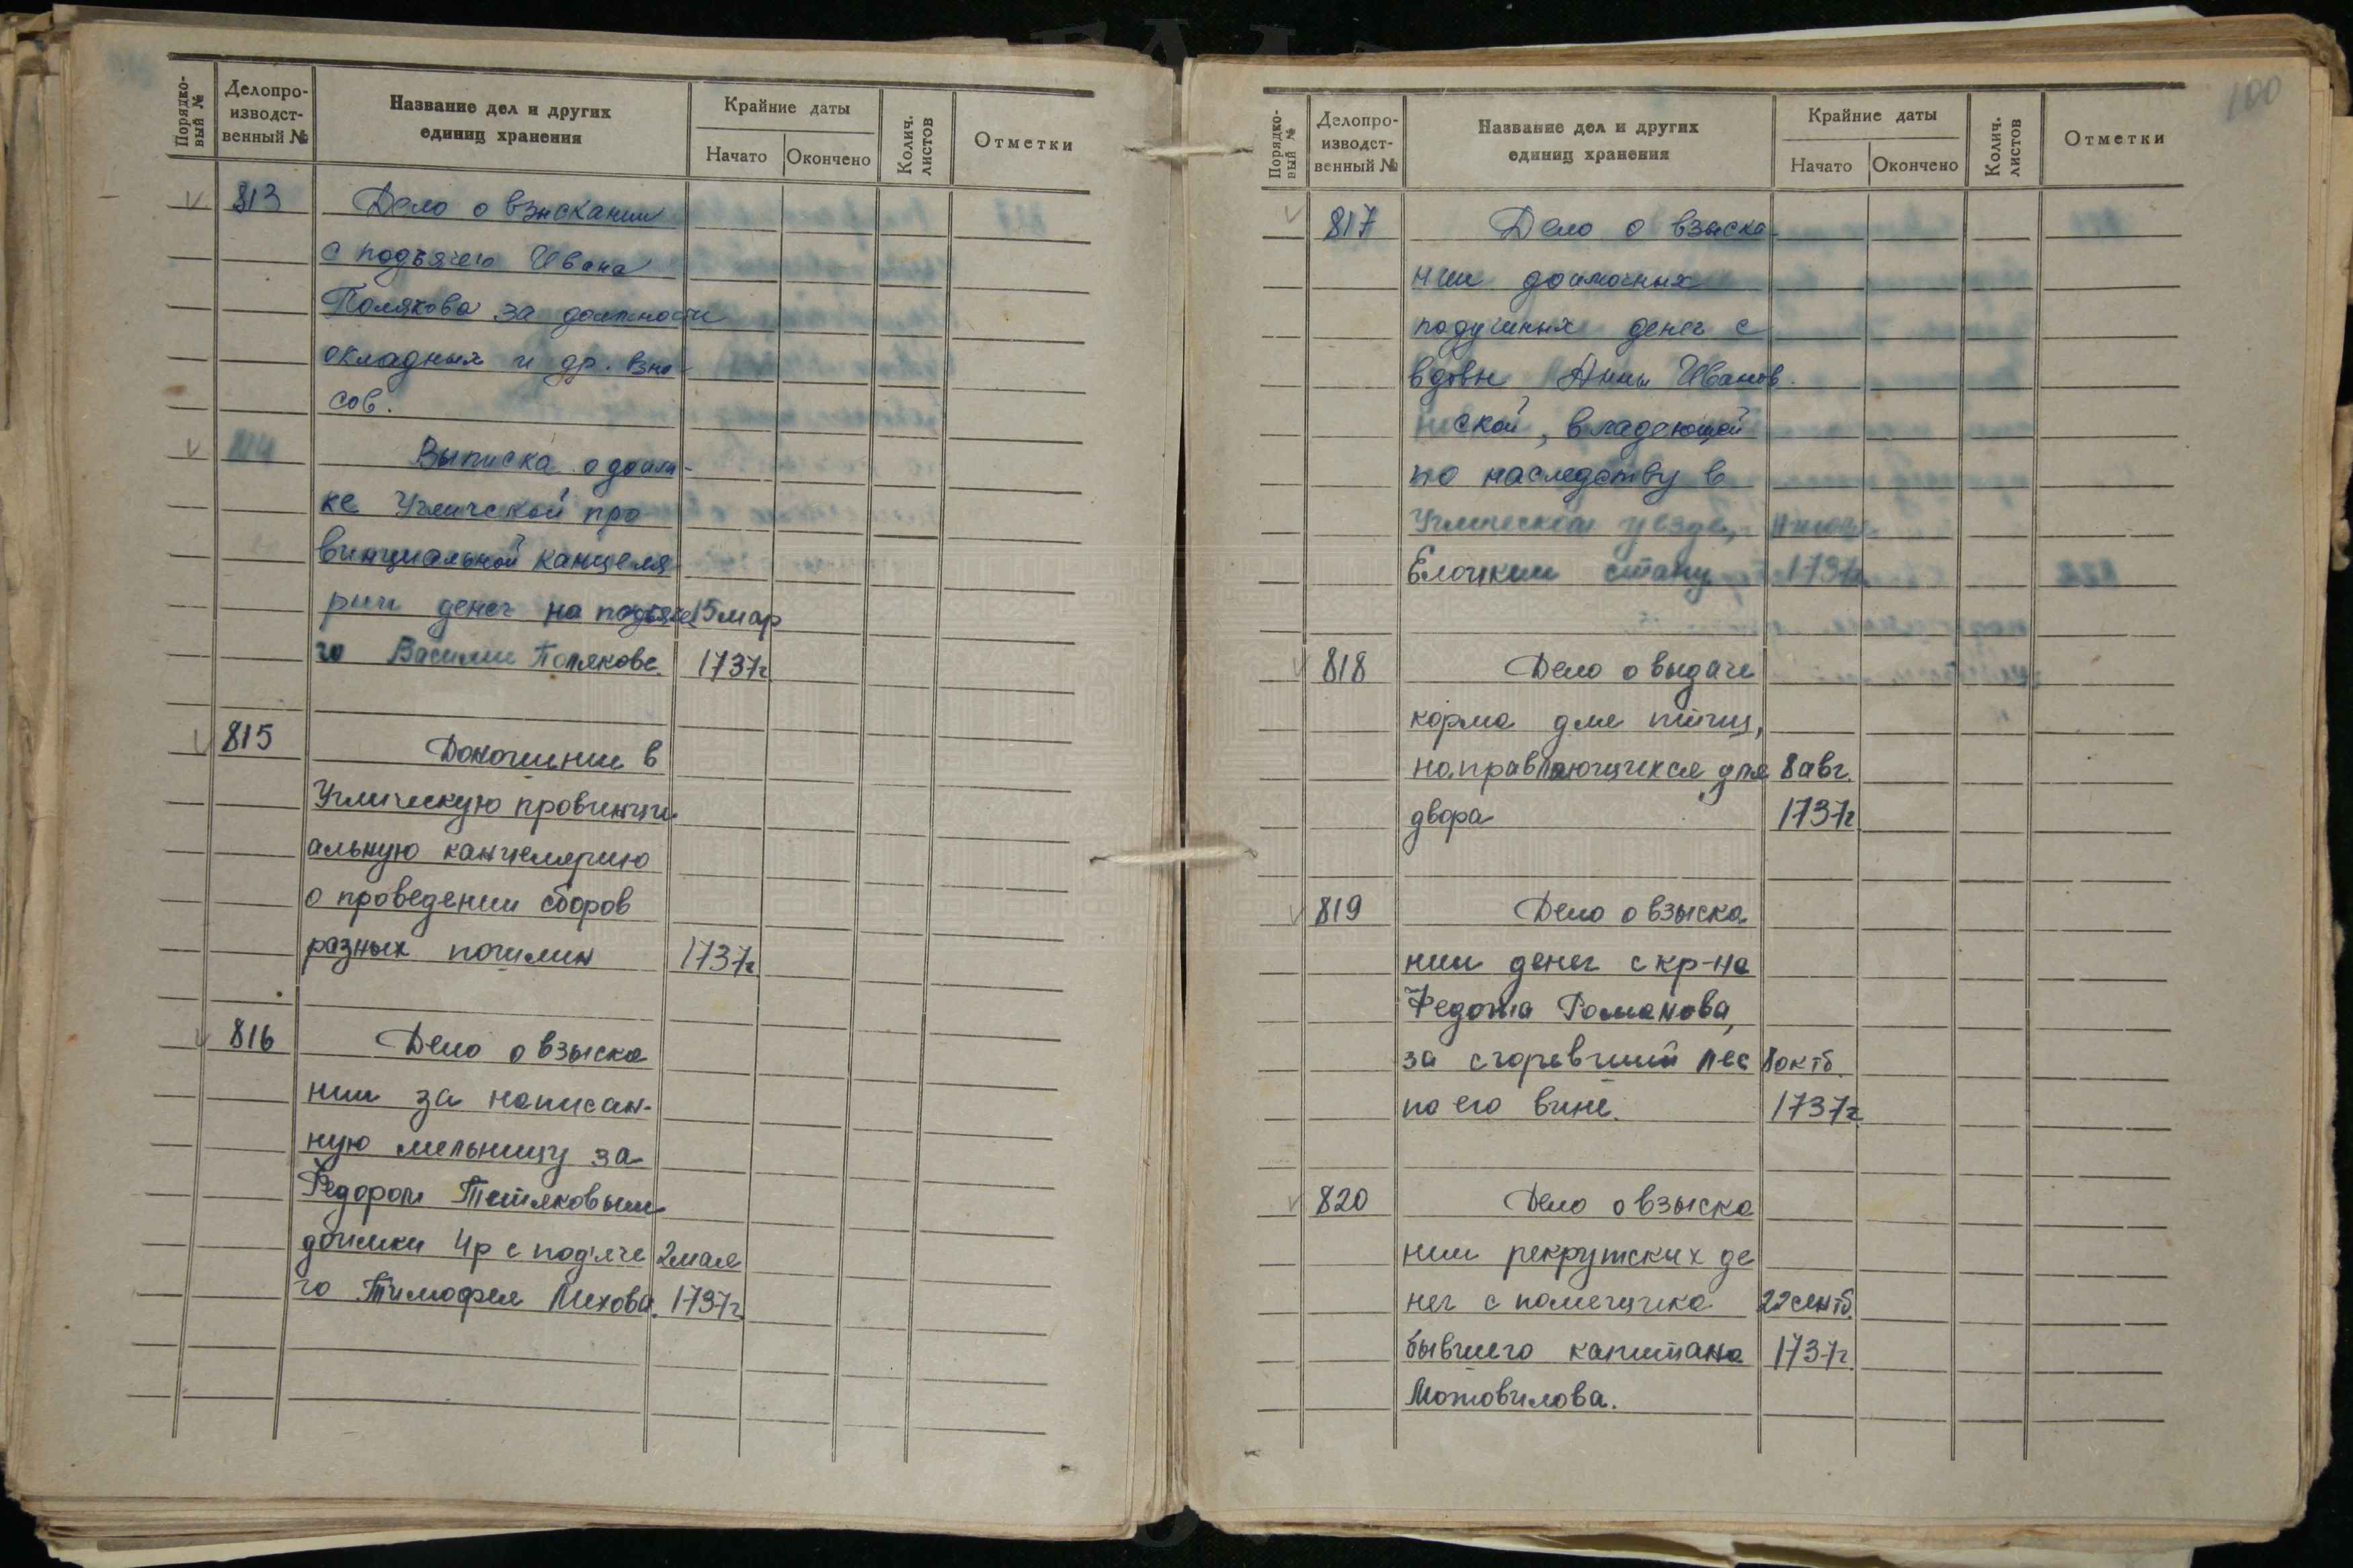 Порядко-
вый №
Делопро-
изводст-
венный №
Название дел и других
единиц хранения
Крайние даты
Начато
Окончено
Колич.
листов
Отметки
813 Дело о взыскании
с подъячего Ивана
Полякова за должности
окладных и др. взно
сов.
814 Выписка о доим-
ке Угличской про
винциальной канцеля
рии денег на подъяче 15 мар
го Василии Полякове. 1737г
815 Доношении в
Угличскую провинци
альную канцелярию
о проведении сборов
разных пошлин 1737г
816 Дело о взыска
нии за написан-
ную мельницу за
Федором Третьяковым
доимки 4р с под'яче 2 мая
го Тимофея Мехова. 1737г.
100
Порядко-
вый №
Делопро-
изводст-
венный №
Название дел и других
единиц хранения
Крайние даты
Начато
Окончено
Колич.
листов
Отметки
817 Дело о взыска
нии доимочных
подушных денег с
вдовы Анны Иванов
ской, владеющей
по наследству в
Угличском уезде,
Елоцким стану 1737г
818 Дело о выдаче
корма для птиц,
направляющихся для 8 авг.
двора 1737г
819 Дело о взыска
нии денег с кр-на
Федота Романова,
за сгоревший лес 8 октб.
по его вине. 1737г
820 Дело о взыска
нии рекрутских де
нег с помещика 22 сентб.
бывшего капитана 1737г.
Мотовилова.